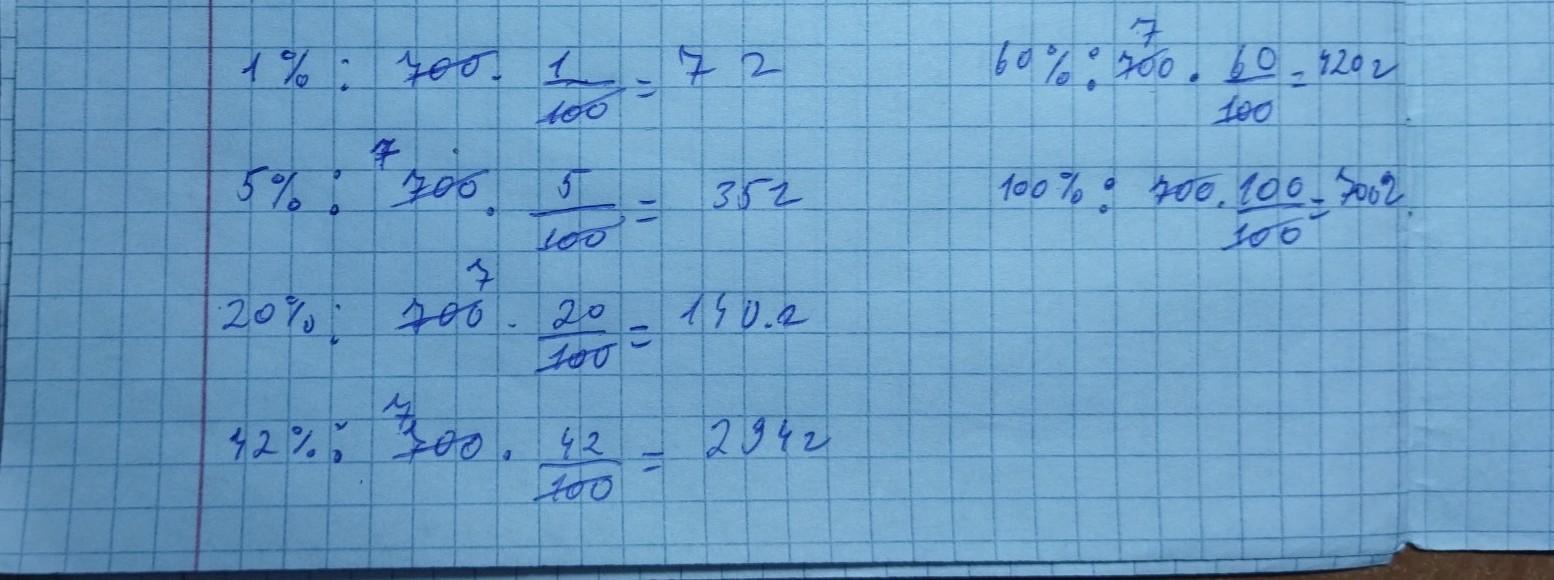 1% : 700 · 1/100 = 7 г
5% : 7 700 · 5/100 = 35 г
20% : 700 7 · 20/100 = 140 г
42% : 7 700 · 42/100 = 294 г
60% : 7 700 · 60/100 = 420 г
100% : 700 · 100/100 = 700 г